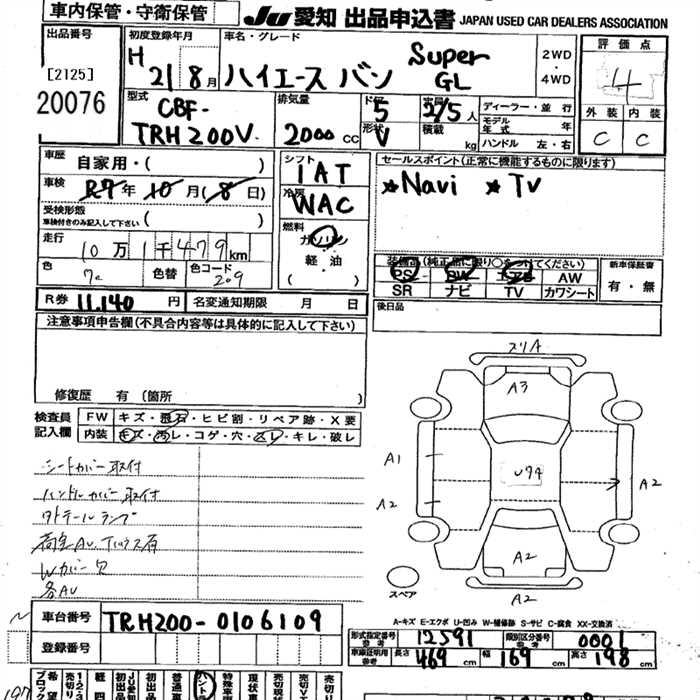 車内保管・守衛保管
JU 愛知 出品申込書 JAPAN USED CAR DEALERS ASSOCIATION
出品番号
[2125]
20076
初度登録年月
H 21年 8月
車名・グレード
ハイエース バン Super GL
2WD
・
4WD
評価点
4
外装 内装
C C
型式
CBF-
TRH200V
排気量
2000 CC
ドア 5
形状 V
定員 2/5 人
積載 kg
ディーラー・並行
モデル年式 年
ハンドル 左・右
車歴 自家用・( )
車検 R7年 10月 (8日)
受検形態
車検付きのみ記入して下さい ( )
走行 10万1千479km
色 色替 色コード 209
シフト
IAT
冷房
WAC
燃料
ガソリン
・
軽油
( )
セールスポイント(正常に機能するものに限ります)
★Navi ★TV
装備品(純正品に限り○をつけてください)
PS PW エアB AW
SR ナビ TV カワシート
新車保証書
有・無
R券 11,140 円 名変通知期限 月 日
後日品
注意事項申告欄(不具合内容等は具体的に記入して下さい)
修復歴 有 (箇所 )
検査員記入欄
FW キズ・飛石・ヒビ割・リペア跡・X要
内装 キズ・汚レ・コゲ・穴・スレ・キレ・破レ
シートカバー取付
ハンドルカバー取付
社外テールランプ
Wカバー欠
各AU
スリA
A3
A1
A2
U94
A2
A2
A2
スペア
A-キズ E-エクボ U-凹み W-補修跡 S-サビ C-腐食 XX-交換済
車台番号 TRH200-0106109
登録番号
形式指定番号 参考 12591 類別区分番号 参考 0001
車庫証明用 参考 長さ 469 cm 幅 169 cm 高さ 198 cm